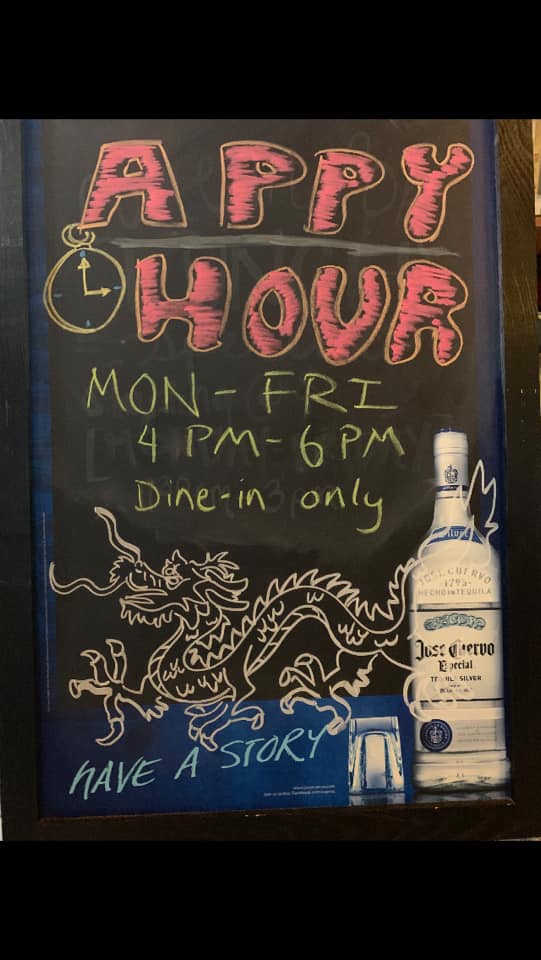 APPY
HOUR
MON-FRI
4 PM-6PM
Dine-in only
Silver
JOSE CUERVO
1795
HECHO EN TEQUILA
Jose Cuervo
Especial
TEQUILA SILVER
HAVE A STORY